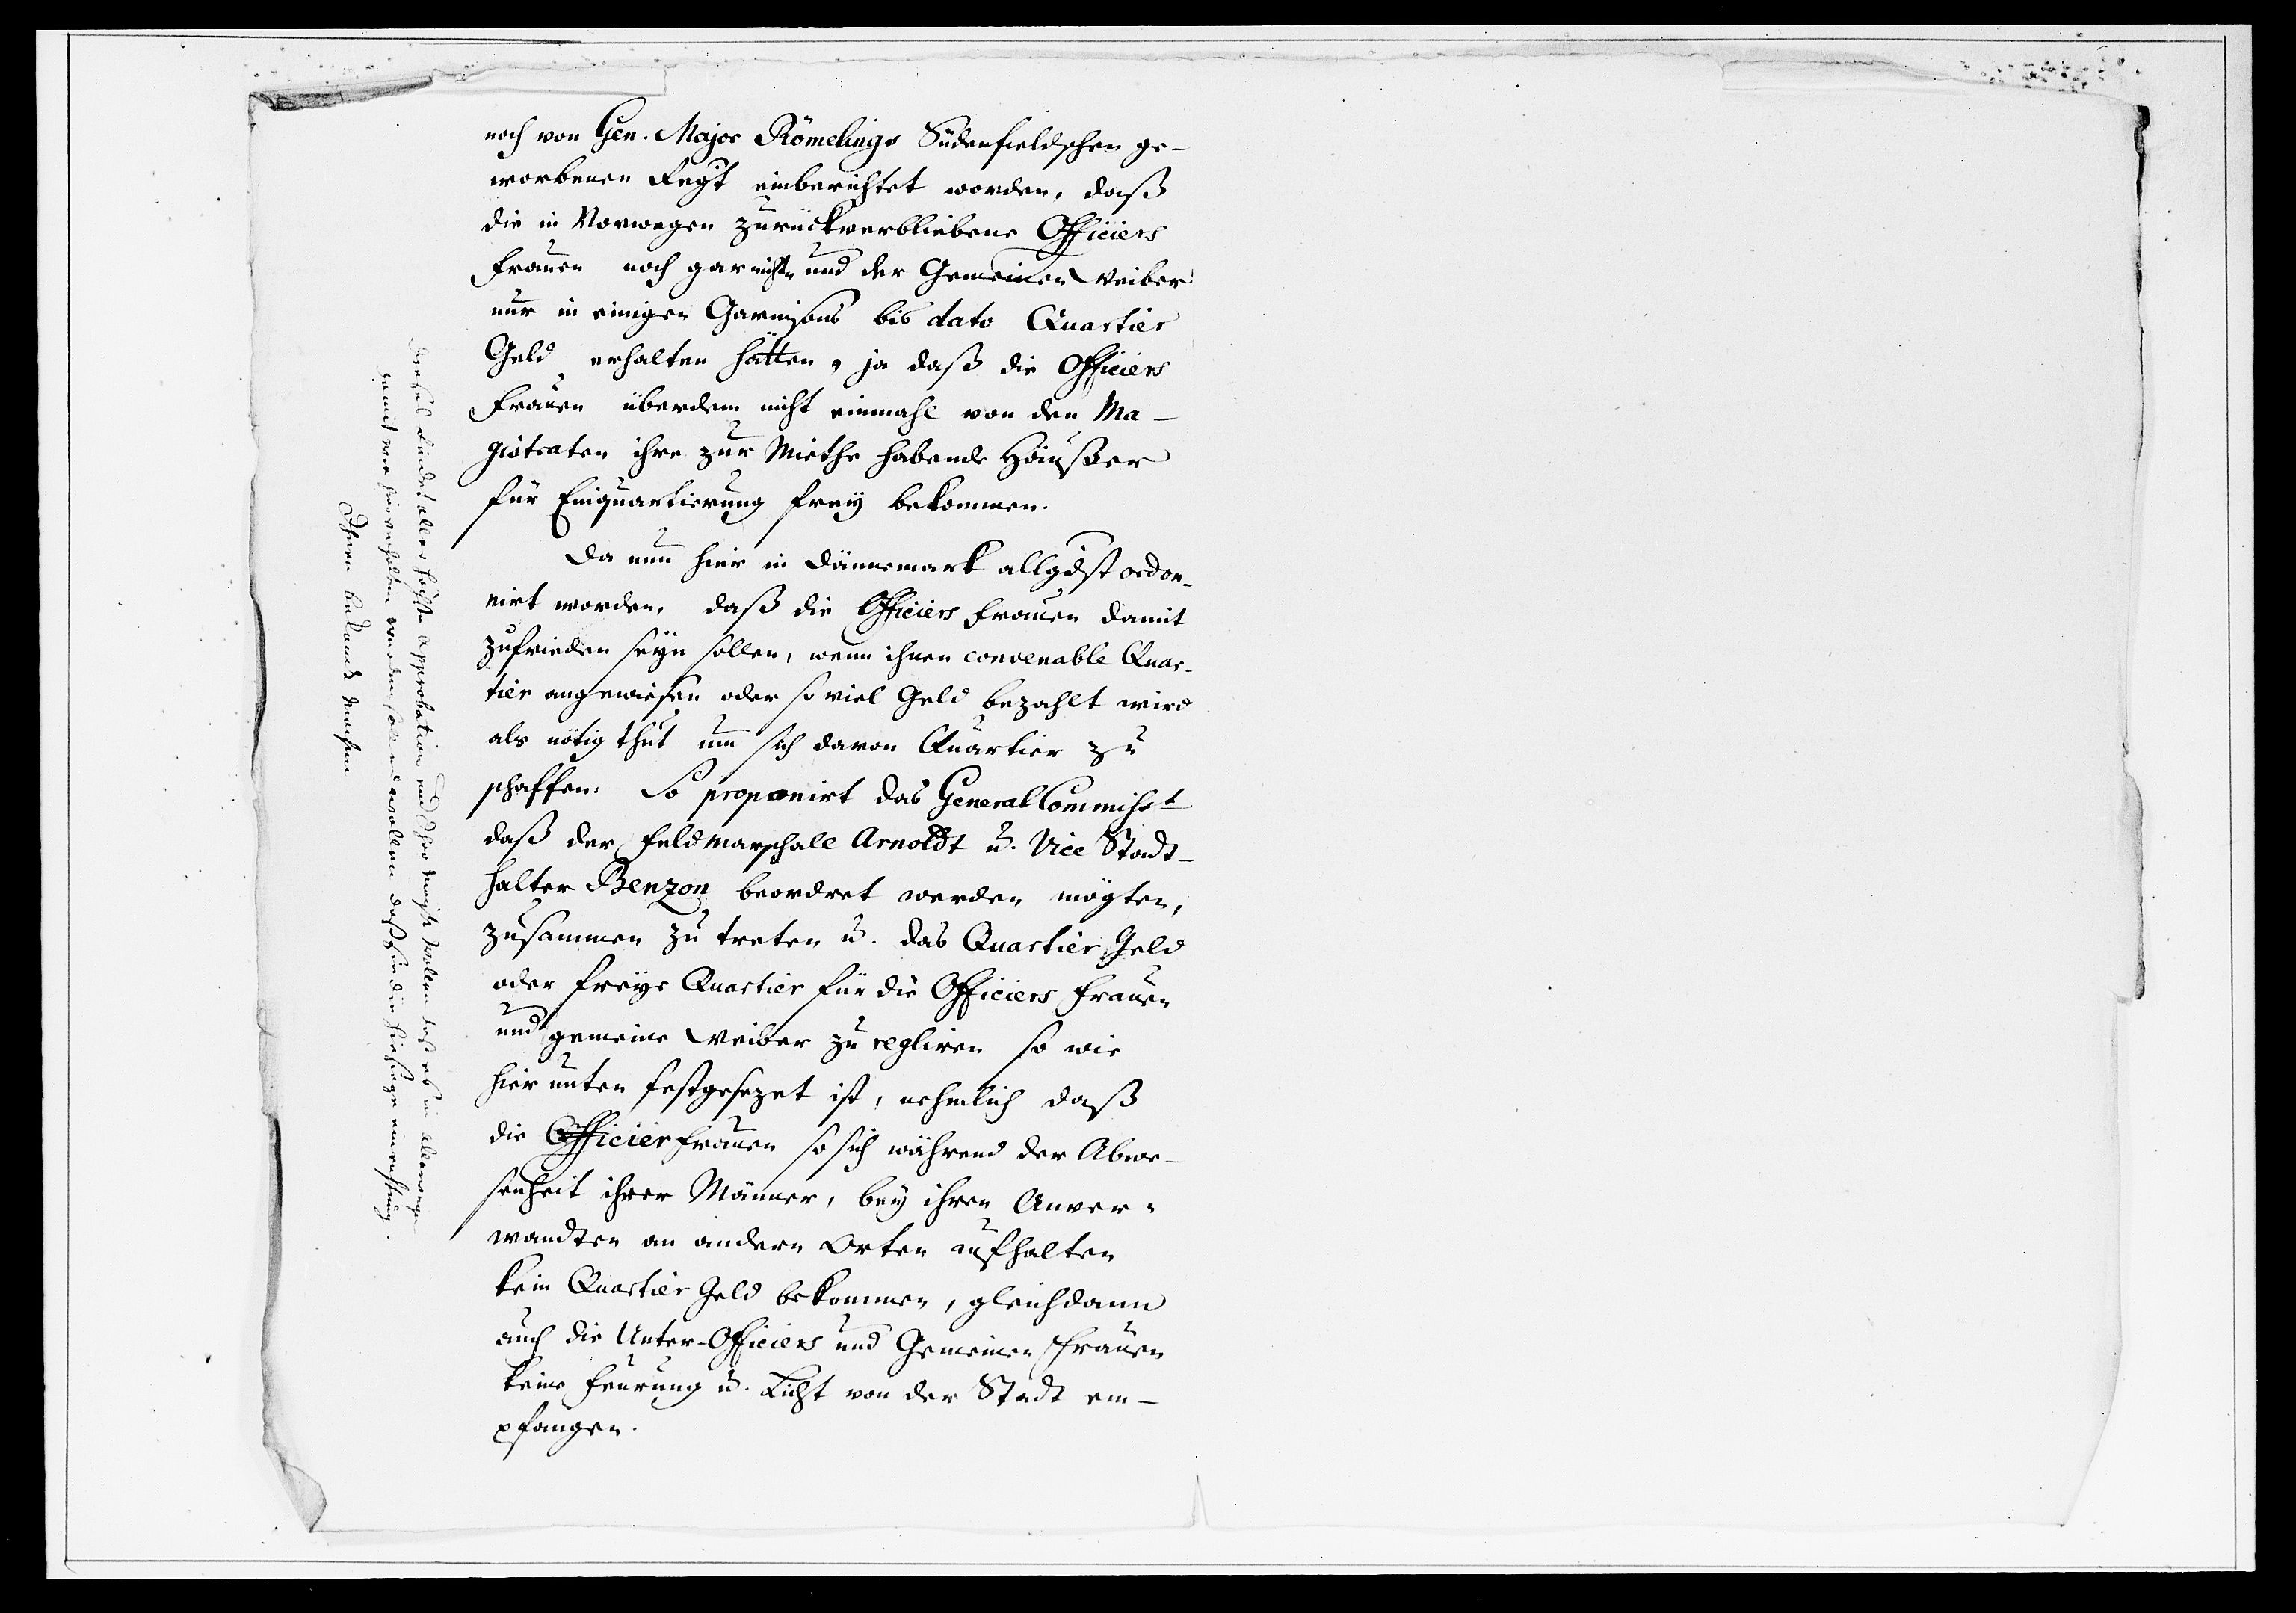 noch von Gen. Major Römelings Südenfieldschen ge-
worbenen Regt einberichtet worden, daß
die in Norwegen zurückverbliebene Officiers
Frauen noch gar nichts und der Gemeinen Weiber
nur in einigen Garnisons bis dato Quartier
Geld erhalten hätten, ja daß die Officiers
Frauen überdem nicht einmahl von den Ma-
gistraten ihre zur Miethe habende Häußer
für Einquartierung frey bekommen.
Da nun hier in Dännemark allgdst ordon-
nirt worden, daß die Officiers Frauen damit
zufrieden seyn sollen, wenn ihnen convenable Quar-
tier angewiesen oder so viel Geld bezahlt wird
als nötig thut um sich davon Quartier zu
schaffen. So proponirt das General Commisst
daß der Feldmarschall Arnoldt u. Vice Stadt-
halter Benzon beordret werden mögten,
zusammen zu treten u. das Quartier Geld
oder freye Quartier für die Officiers Frauen
und gemeine Weiber zu regliren so wie
hier unten festgesezet ist, nehmlich daß
die Officier Frauen so sich während der Abwe-
senheit ihrer Männer, bey ihren Anver-
wandten an andern Orten aufhalten
kein Quartier Geld bekommen, gleichdann
auch die Unter-Officiers und Gemeinen Frauen
keine Feurung u. Licht von der Stadt em-
pfangen.
findet allerhöchste Approbation und Ihro Mayst wollen daß es in allerwege
damit wie hier gehalten werden soll wollen daß Sie die hiesige einrichtung
Ihnen bekand machen